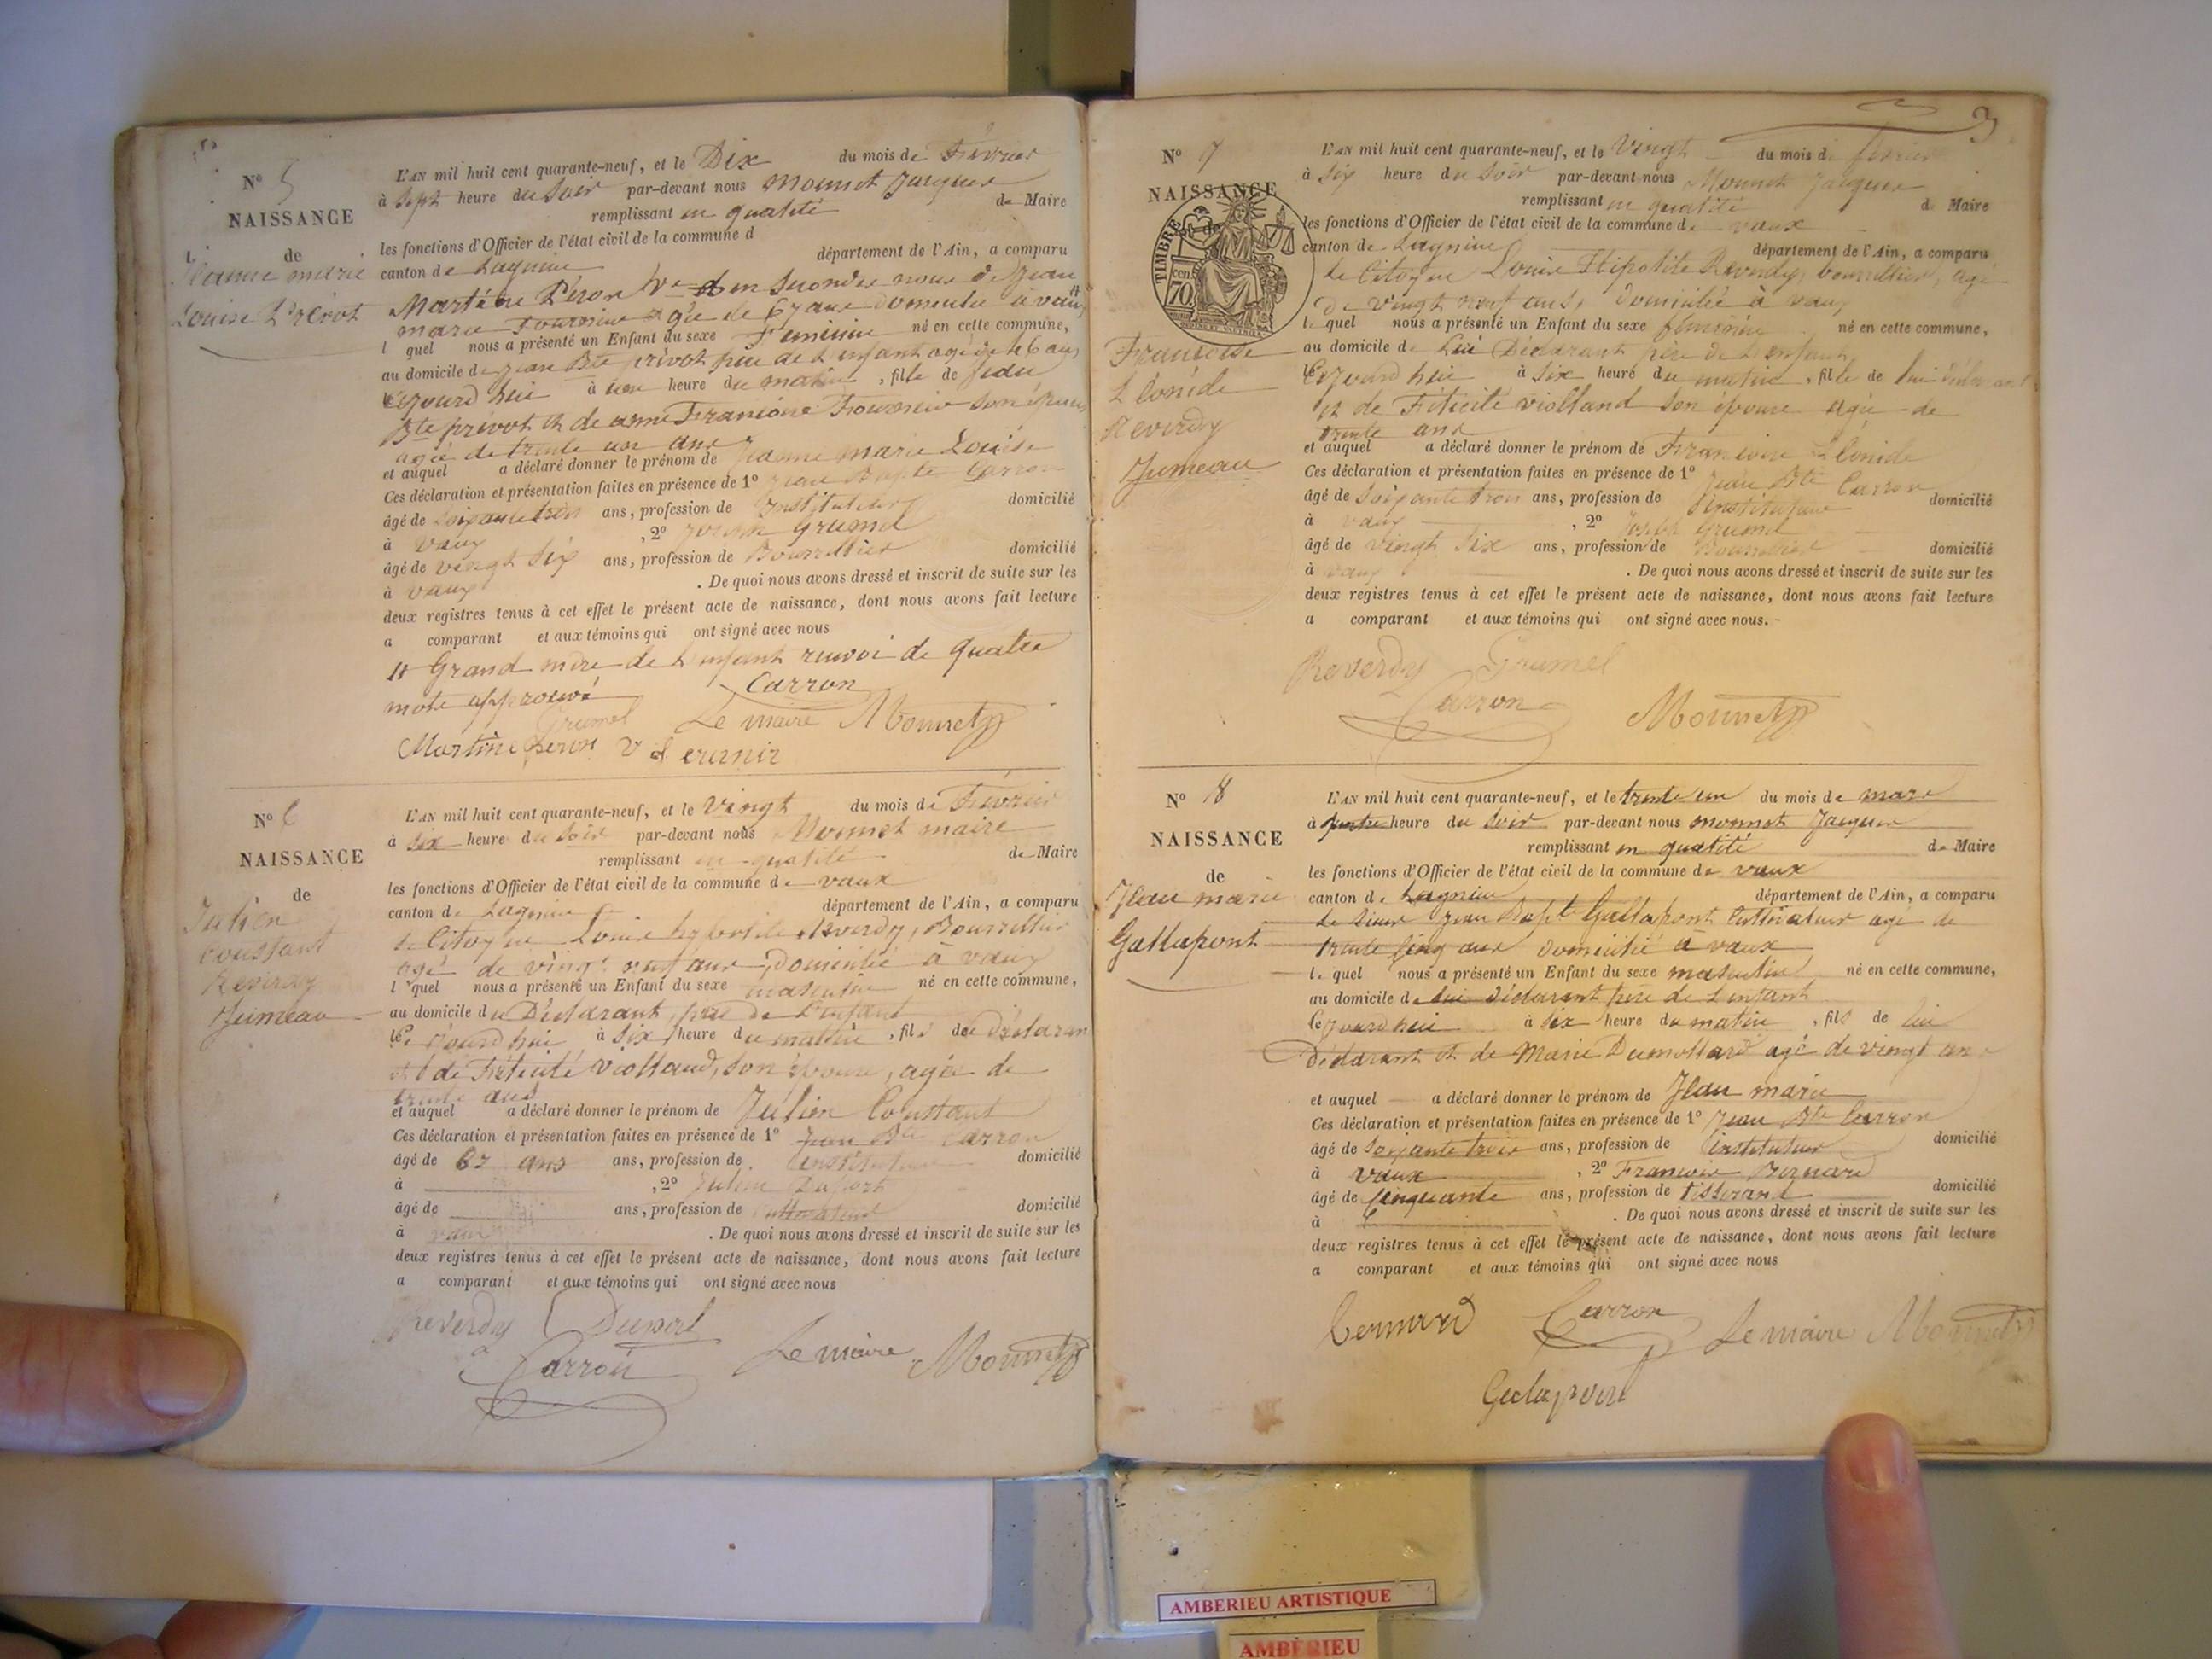 N° 5
NAISSANCE
de
Jeanne marie
Louise Prévot
L'AN mil huit cent quarante-neuf, et le Dix du mois de Février
à Sept heure du Soir par-devant nous monnet Jacques
remplissant en qualité de Maire
les fonctions d'Officier de l'état civil de la commune d
canton de Lagnieu département de l'Ain, a comparu
Martine Péron Ve en secondes noces de Jean
marie agée de 67 ans domiciliée à vaux #
l quel nous a présenté un Enfant du sexe Feminin né en cette commune,
au domicile de jean Bte prévot père de l'enfant agé de 46 ans
Cejourd'hui à une heure du matin, fille de Jean
Bte prévot et de Françoise son épouse
agée de trente un ans
et auquel a déclaré donner le prénom de Jeanne marie Louise
Ces déclaration et présentation faites en présence de 1° Jean Bapte Carron
âgé de soixante trois ans, profession de Instituteur domicilié
à vaux , 2° Joseph Grumel
âgé de vingt six ans, profession de Bourrellier domicilié
à vaux . De quoi nous avons dressé et inscrit de suite sur les
deux registres tenus à cet effet le présent acte de naissance, dont nous avons fait lecture
a comparant et aux témoins qui ont signé avec nous
# Grand mère de l'enfant renvoi de quatre
mots approuvé Carron
Grumel Le maire Monnet
Martine peron v
N° 6
NAISSANCE
de
Julien
Constant
Reverdy
Jumeau
L'AN mil huit cent quarante-neuf, et le Vingt du mois de Février
à six heure du soir par-devant nous Monnet maire
remplissant en qualité de Maire
les fonctions d'Officier de l'état civil de la commune de vaux
canton de Lagnieu département de l'Ain, a comparu
le Citoyen Louis hypolite Reverdy, Bourrellier
agé de vingt neuf ans, Domicilié à vaux
l quel nous a présenté un Enfant du sexe masculin né en cette commune,
au domicile du Déclarant, père de L'enfant
le jourd'hui à six heure du matin, fils du déclarant
et de Félicité Violland, son épouse, agée de
trente ans
et auquel a déclaré donner le prénom de Julien Constant
Ces déclaration et présentation faites en présence de 1° Jean Bte Carron
âgé de 63 ans ans, profession de instituteur domicilié
à , 2° Julien Duport
âgé de ans, profession de cultivateur domicilié
à vaux . De quoi nous avons dressé et inscrit de suite sur les
deux registres tenus à cet effet le présent acte de naissance, dont nous avons fait lecture
a comparant et aux témoins qui ont signé avec nous
Reverdy Duport
Carron Le maire Monnet
3
N° 7
NAISSANCE
de
TIMBRE
cen
70
Françoise
Léonide
Reverdy
Jumeau
L'AN mil huit cent quarante-neuf, et le Vingt du mois de février
à six heure du soir par-devant nous Monnet Jacques
remplissant en qualité de Maire
les fonctions d'Officier de l'état civil de la commune de vaux
canton de Lagnieu département de l'Ain, a comparu
le Citoyen Louis Hipolite Reverdy, bourrellier, agé
de vingt neuf ans, domicilié à vaux
le quel nous a présenté un Enfant du sexe féminin né en cette commune,
au domicile de Lui Déclarant père de l'enfant
Cejourd'hui à six heure du matin, fille de lui déclarant
et de Félicité violland son épouse agée de
trente ans
et auquel a déclaré donner le prénom de Françoise Léonide
Ces déclaration et présentation faites en présence de 1° Jean Bte Carron
âgé de soixante trois ans, profession de instituteur domicilié
à vaux , 2° Joseph Grumel
âgé de vingt six ans, profession de Bourrellier domicilié
à vaux . De quoi nous avons dressé et inscrit de suite sur les
deux registres tenus à cet effet le présent acte de naissance, dont nous avons fait lecture
a comparant et aux témoins qui ont signé avec nous.
Reverdy Grumel
Carron Monnet
N° 8
NAISSANCE
de
Jean marie
Gallapont
L'AN mil huit cent quarante-neuf, et le trente un du mois de mars
à quatre heure du soir par-devant nous monnet Jacques
remplissant en qualité de Maire
les fonctions d'Officier de l'état civil de la commune de vaux
canton de Lagnieu département de l'Ain, a comparu
le sieur Jean Bapte Gallapont cultivateur agé de
trente cinq ans domicilié à vaux
le quel nous a présenté un Enfant du sexe masculin né en cette commune,
au domicile de lui déclarant père de l'enfant
Cejourd'hui à six heure du matin, fils de lui
déclarant et de Marie Dumollard agé de vingt an
et auquel a déclaré donner le prénom de Jean marie
Ces déclaration et présentation faites en présence de 1° Jean Bte Carron
âgé de soixante trois ans, profession de instituteur domicilié
à vaux , 2° François Bernard
âgé de cinquante ans, profession de tisserand domicilié
à . De quoi nous avons dressé et inscrit de suite sur les
deux registres tenus à cet effet le présent acte de naissance, dont nous avons fait lecture
a comparant et aux témoins qui ont signé avec nous
bernard Carron Le maire Monnet
AMBERIEU ARTISTIQUE
AMBERIEU